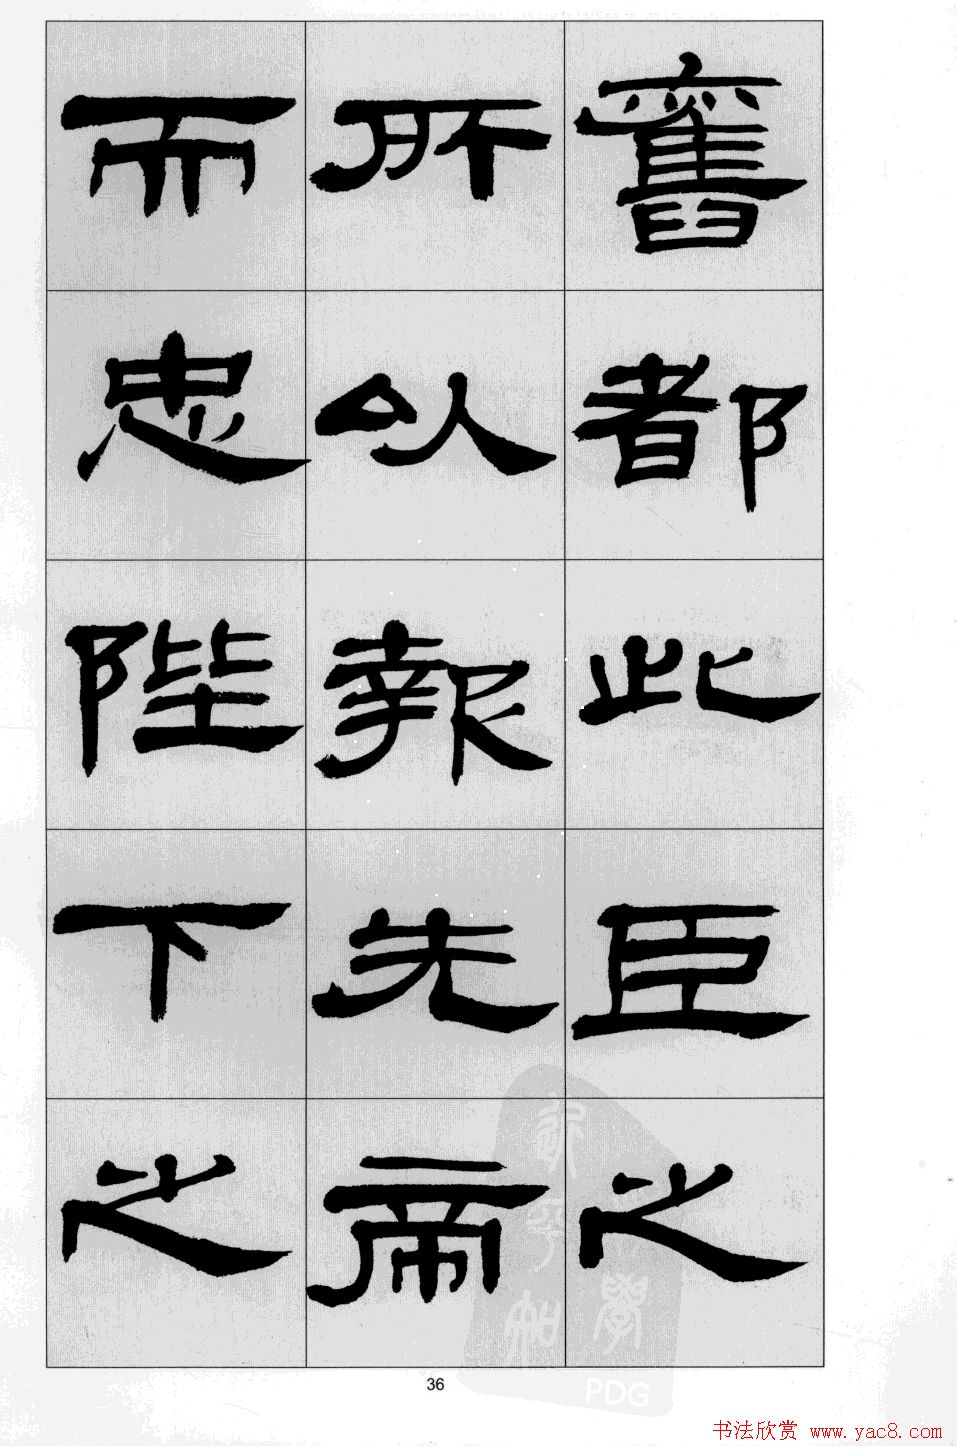 舊都此臣之
所以報先帝
而忠陛下之
36
PDG
书法欣赏 www.yac8.com